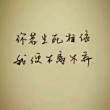 你若生死相依
我便不离不弃